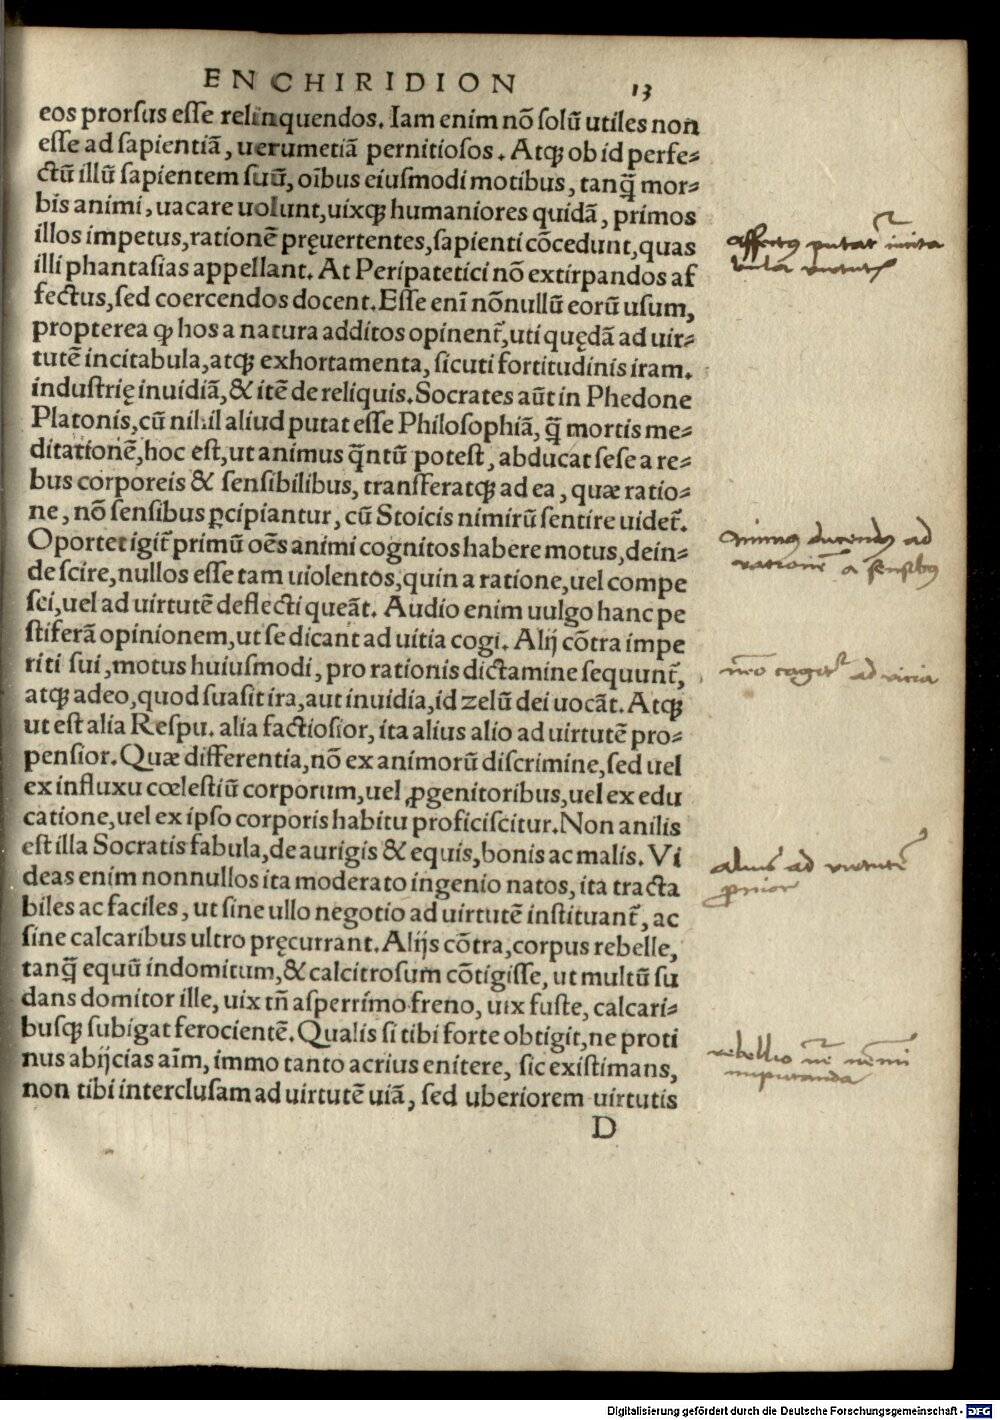 ENCHIRIDION 13
eos prorſus eſſe relinquendos. Iam enim nõ ſolũ utiles non
eſſe ad ſapientiã, uerumetiã pernitioſos. Atqꝫ ob id perfe⸗
ctũ illũ ſapientem ſuũ, oĩbus eiuſmodi motibus, tanq̃ mor⸗
bis animi, uacare uolunt, uixqꝫ humaniores quidã, primos
illos impetus, rationẽ pręuertentes, ſapienti cõcedunt, quas
illi phantaſias appellant. At Peripatetici nõ extirpandos af
fectus, ſed coercendos docent. Eſſe enĩ nõnullũ eorũ uſum,
propterea ꝙ hos a natura additos opinent᷑, uti quędã ad uir⸗
tutẽ incitabula, atqꝫ exhortamenta, ſicuti fortitudinis iram.
induſtrię inuidiã, & itẽ de reliquis. Socrates aũt in Phedone
Platonis, cũ nihil aliud putat eſſe Philoſophiã, q̃ mortis me⸗
ditationẽ, hoc eſt, ut animus q̃ntũ poteſt, abducat ſeſe a re⸗
bus corporeis & ſenſibilibus, tranſferatqꝫ ad ea, quæ ratio⸗
ne, nõ ſenſibus ꝑcipiantur, cũ Stoicis nimirũ ſentire uidet᷑.
Oportet igit᷑ primũ oẽs animi cognitos habere motus, dein⸗
de ſcire, nullos eſſe tam uiolentos, quin a ratione, uel compe
ſci, uel ad uirtutẽ deflecti queãt. Audio enim uulgo hanc pe
ſtiferã opinionem, ut ſe dicant ad uitia cogi. Alij cõtra impe
riti ſui, motus huiuſmodi, pro rationis dictamine ſequunt᷑,
atqꝫ adeo, quod ſuaſit ira, aut inuidia, id zelũ dei uocãt. Atqꝫ
ut eſt alia Reſpu. alia factioſior, ita alius alio ad uirtutẽ pro⸗
penſior. Quæ differentia, nõ ex animorũ diſcrimine, ſed uel
ex influxu cœleſtiũ corporum, uel ꝓgenitoribus, uel ex edu
catione, uel ex ipſo corporis habitu proficiſcitur. Non anilis
eſt illa Socratis fabula, de aurigis & equis, bonis ac malis. Vi
deas enim nonnullos ita moderato ingenio natos, ita tracta
biles ac faciles, ut ſine ullo negotio ad uirtutẽ inſtituant᷑, ac
ſine calcaribus ultro pręcurrant. Alijs cõtra, corpus rebelle,
tanq̃ equũ indomitum, & calcitroſum cõtigiſſe, ut multũ ſu
dans domitor ille, uix tñ aſperrimo freno, uix fuſte, calcari⸗
busqꝫ ſubigat ferocientẽ. Qualis ſi tibi forte obtigit, ne proti
nus abijcias aĩm, immo tanto acrius enitere, ſic exiſtimans,
non tibi interclusam ad uirtutẽ uiã, ſed uberiorem uirtutis
D
affectus putat᷑ incita
bula virtutis
animus ducendus ad
rationẽ a sensibus
nemo cogit᷑ ad vicia
alius ad virtutẽ
ꝓnior
rebellio
imputanda
Digitalisierung gefördert durch die Deutsche Forschungsgemeinschaft - DFG